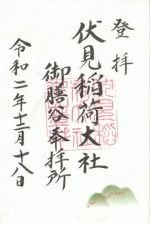 登拝
伏見稲荷大社
御膳谷奉拝所
令和二年十二月十八日